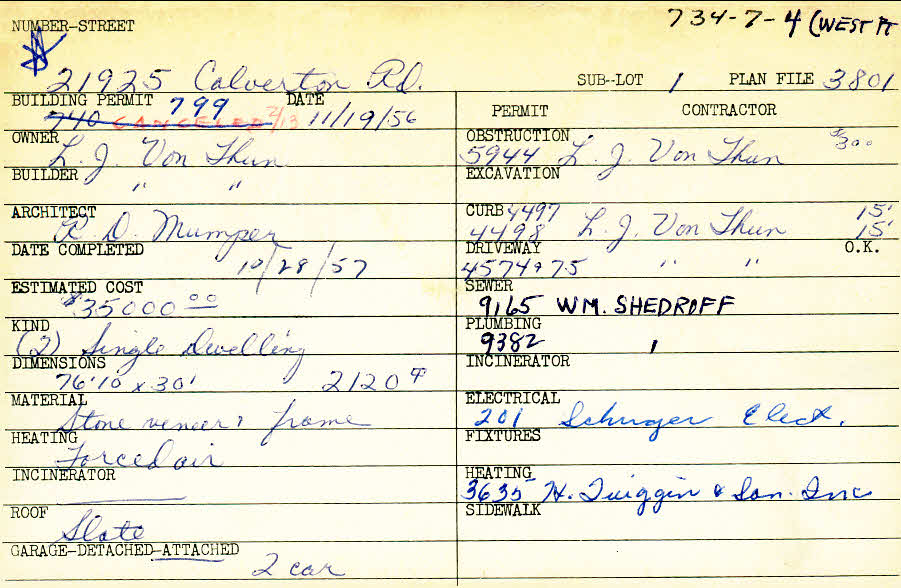 734-7-4 (WEST PT
NUMBER-STREET
21925 Calverton Rd.
SUB-LOT 1 PLAN FILE 3801
BUILDING PERMIT 799 DATE
740 CANCELED 2/13 11/19/56
OWNER
L. J. Von Thun
BUILDER
" "
ARCHITECT
R. D. Mumper
DATE COMPLETED
10/28/57
ESTIMATED COST
$35000.00
KIND
(2) Single Dwelling
DIMENSIONS
76'10 x 30' 2120
MATERIAL
Stone veneer & frame
HEATING
Forced air
INCINERATOR
ROOF
Slate
GARAGE-DETACHED-ATTACHED
2 car
PERMIT CONTRACTOR
OBSTRUCTION
5944 L. J. Von Thun $300
EXCAVATION
CURB 4497 15'
4498 L. J. Von Thun 15'
DRIVEWAY O.K.
4574 & 75 " "
SEWER
9165 WM. SHEDROFF
PLUMBING
9382 "
INCINERATOR
ELECTRICAL
201 Elect.
FIXTURES
HEATING
3635 H. Twiggin & Son. Inc
SIDEWALK